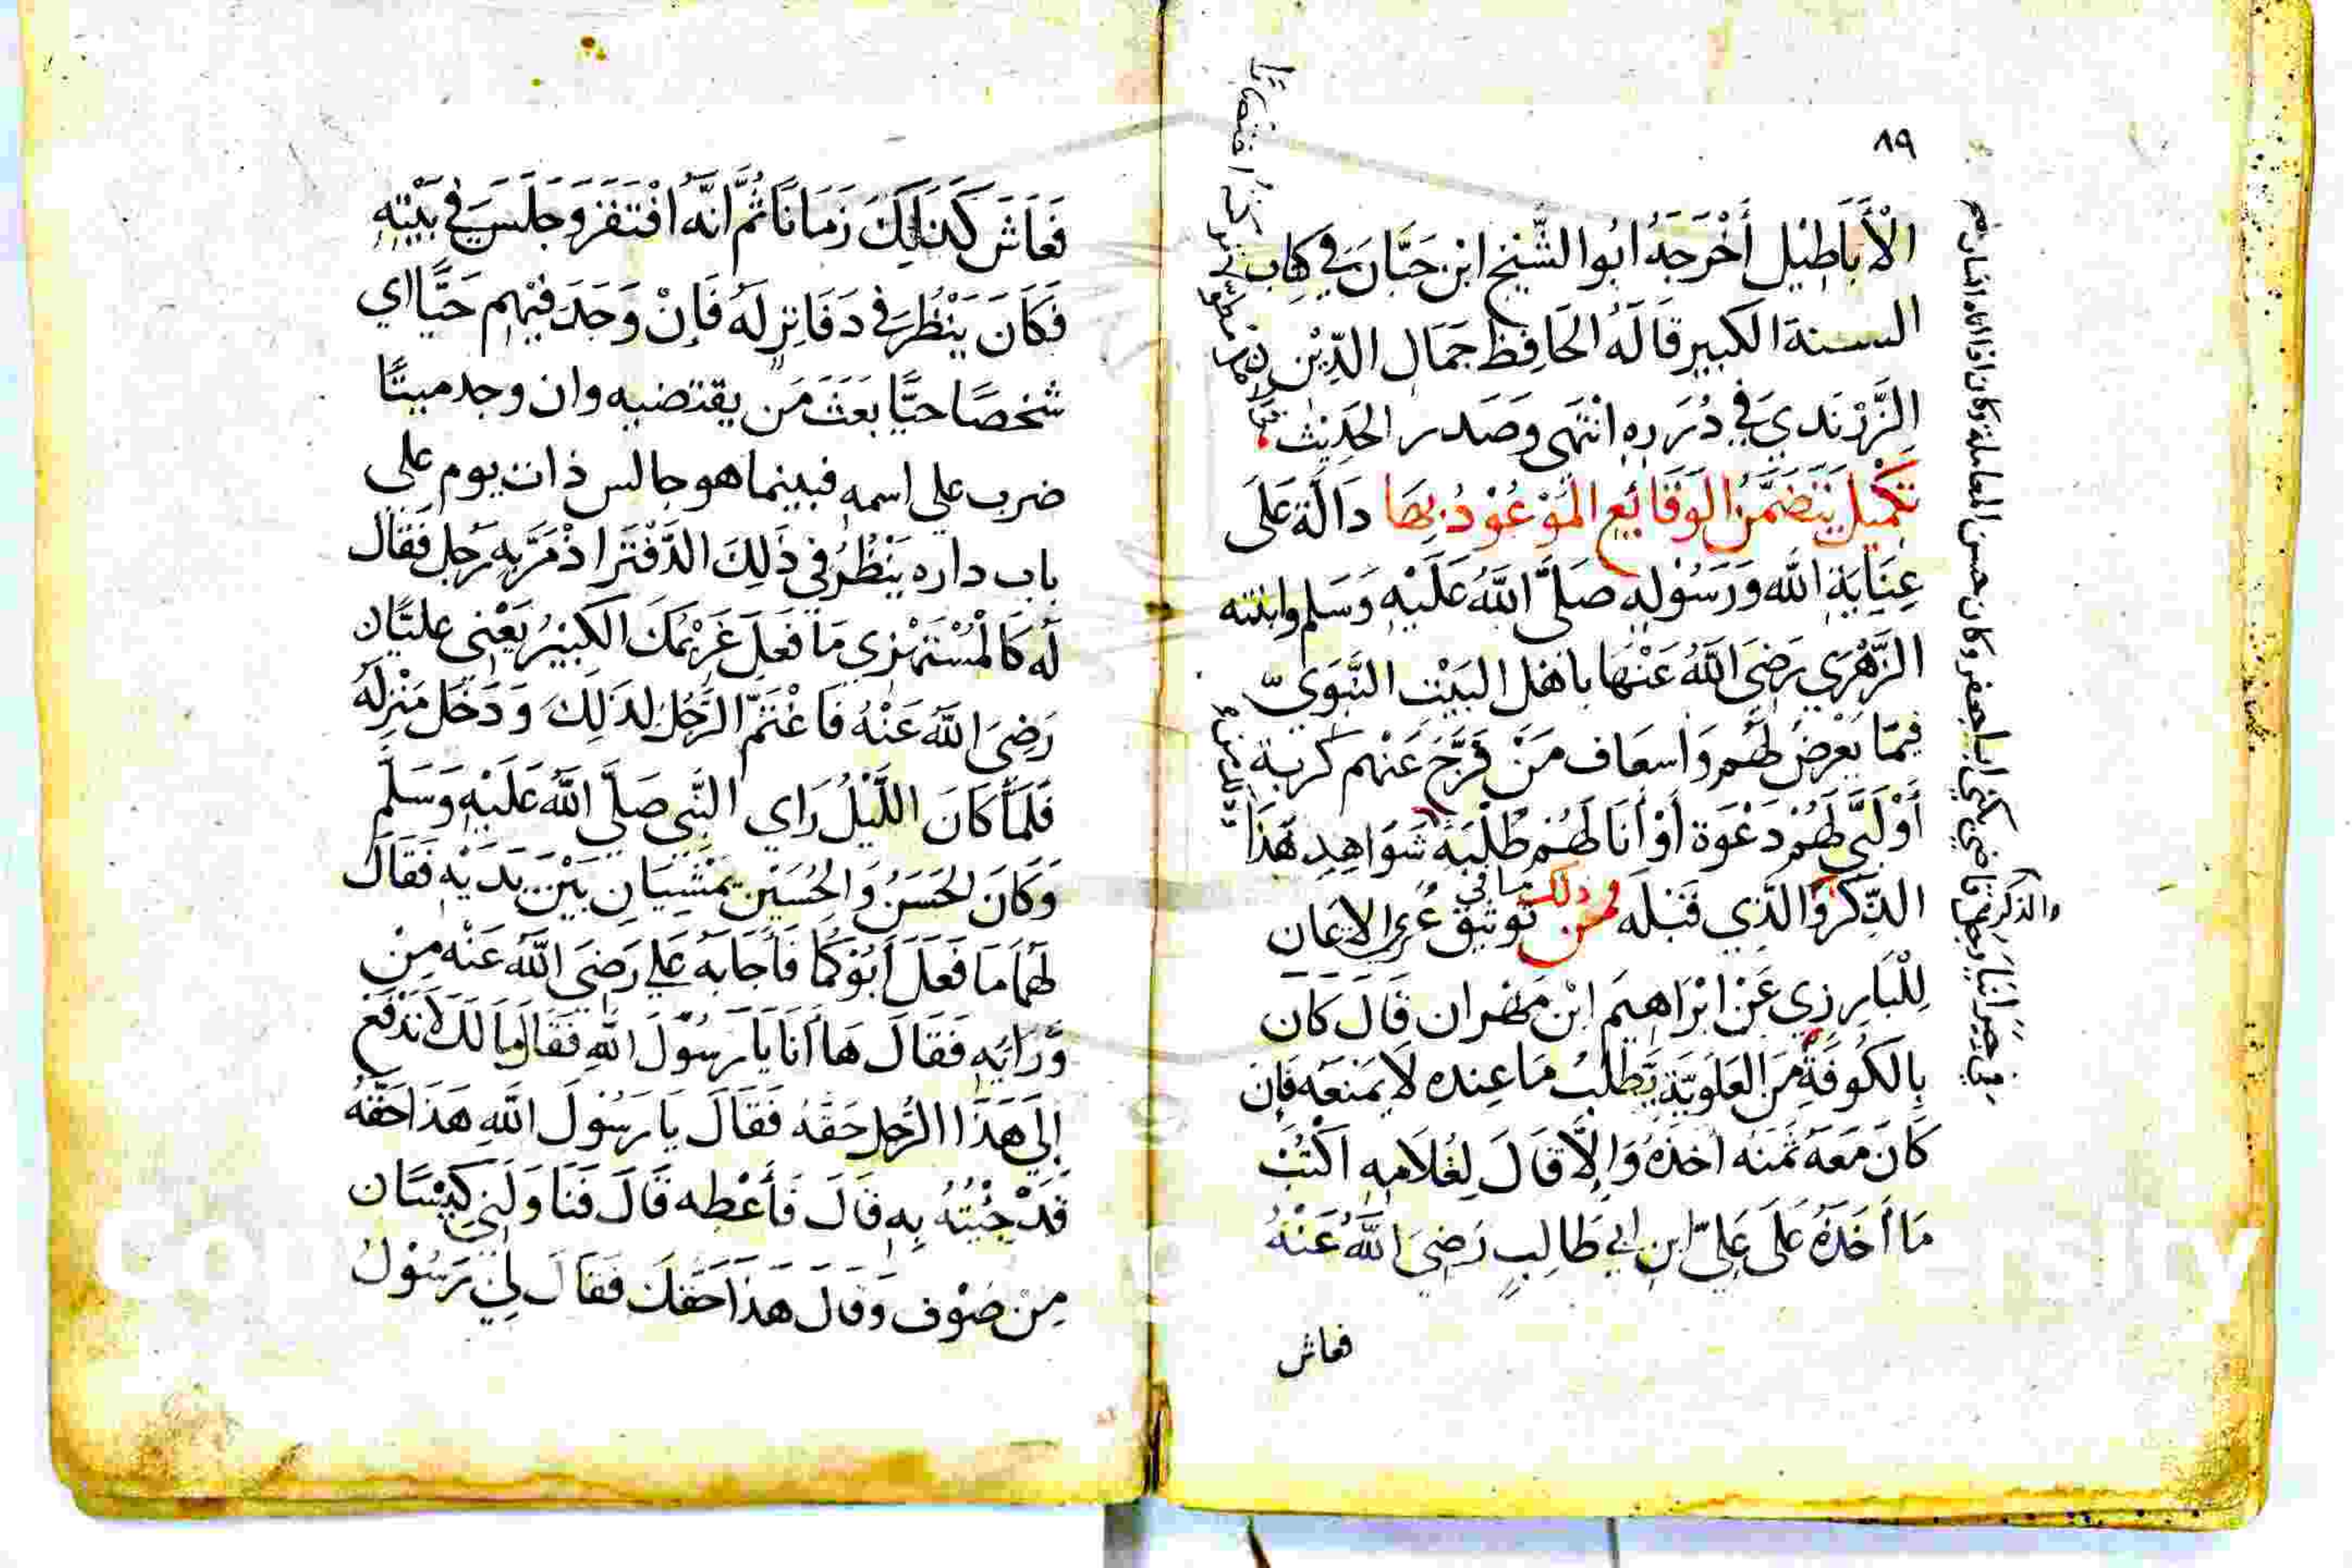 ٨٩
الْأَبَاطِيْل أَخْرَجَهُ ابُوا الشَّيْخ ابْن حَبَّان فِي كِتَاب
السنة الكبير قَالَهُ الحَافِظ جَمَال الدِّيْن
الزَّرَنْدي في دُرَره انْتَهى وَصَدر الحَدِيْث
تَكْمِيل يَتَضَمَّنُ الوَقَائِع المَوْعُوْدُ بِهَا دَالَّة عَلَى
عِنَايَة الله وَرَسُوْلِه صَلَّى اللهُ عَلَيْه وَسَلم وابنته
الزَّهْرَي رَضِيَ اللهُ عَنْهَا باهْل البَيْت النَّبَوِيّ
فِيمَا يَعْرِضُ لَهُم وَاسعَاف مَنْ فَرَّجَ عَنْهم كربة
أَوْ لَبَّى لَهُمْ دَعْوَة أَوْ أنَا لَهُمْ طُلْبَة شَوَاهِد هَذَا
الذِّكْرُ وَالذِّي قَبْلَه فمن ذلك ما في تَوثِيق عُرى الايمان
لِلْبَارِزي عَنْ ابْرَاهِيم ابْن مَهْران قَالَ كَان
بِالكُوفَةِ مَنَ العَلَوِيَّة يَطْلُبُ مَا عِنده لَا يَمْنَعه فَإن
كَانَ مَعَهُ ثَمَنه أخَذَهُ وَإلَّا قَالَ لِغُلَامِه اكْتُبْ
مَا أخَذَهُ عَلَى عَلِيّ ابن ابي طَالِب رَضِيَ اللهُ عَنْهُ
فعاش
والذكر
فَعَاشَ كَذَالِكَ زَمَانًا ثُمَّ انَّهُ افْتَقَرَ وَجَلَسَ في بَيْتِه
فَكَانَ يَنْظُرَ في دَفَاتِر لَهُ فَإنْ وَجَدَ فيْهِم حَيًّا اي
شخصًا حيًّا بَعَثَ مَن يقتضيه وان وجد ميتًا
ضرب علي اسمه فبينما هو جالس ذات يوم علي
باب داره يَنْظُرُ في ذَلِكَ الدَّفْتَر اذْ مَرَّ بِه رَجل فَقَال
لَه كَالْمُسْتَهْزي مَا فَعَلَ غَرِيْمُكَ الكَبِيْرُ يَعْنِي عليًّا
رَضِيَ اللهُ عَنْهُ فَاغْتَمَّ الرَّجُلُ لِذَلِكَ وَدَخَل مَنْزِلهُ
فَلَمَّا كَانَ اللَّيْلُ رَاي النَّبِي صَلَّى اللهُ عَلَيْه وَسَلَّم
وَكَانَ الحَسَنُ وَالحُسَيْن يَمْشِيَانِ بَيْنَ يَدَيْه فَقَالَ
لَهُمَا مَا فَعَلَ أَبُوْكُمَا فَأَجَابَهُ عَلي رَضِيَ اللهُ عَنْه مِنْ
وَّرَائِه فَقَالَ هَا أنَا يَا رَسُوْلَ اللهِ فَقَالَ مَا لَكَ لَا تَدْفَع
إلَى هَذَا الرَّجل حَقَّهُ فَقَالَ يَا رَسُوْلَ اللهِ هَذَا حَقّهُ
قَدْ جِئْتُهُ بِه قَالَ فَأَعْطِه قَالَ فَنَاوَلَني كِيْسًا
مِنْ صُوْف وَقَالَ هَذَا حَقّكَ فَقَالَ لِي رَسُوْلُ